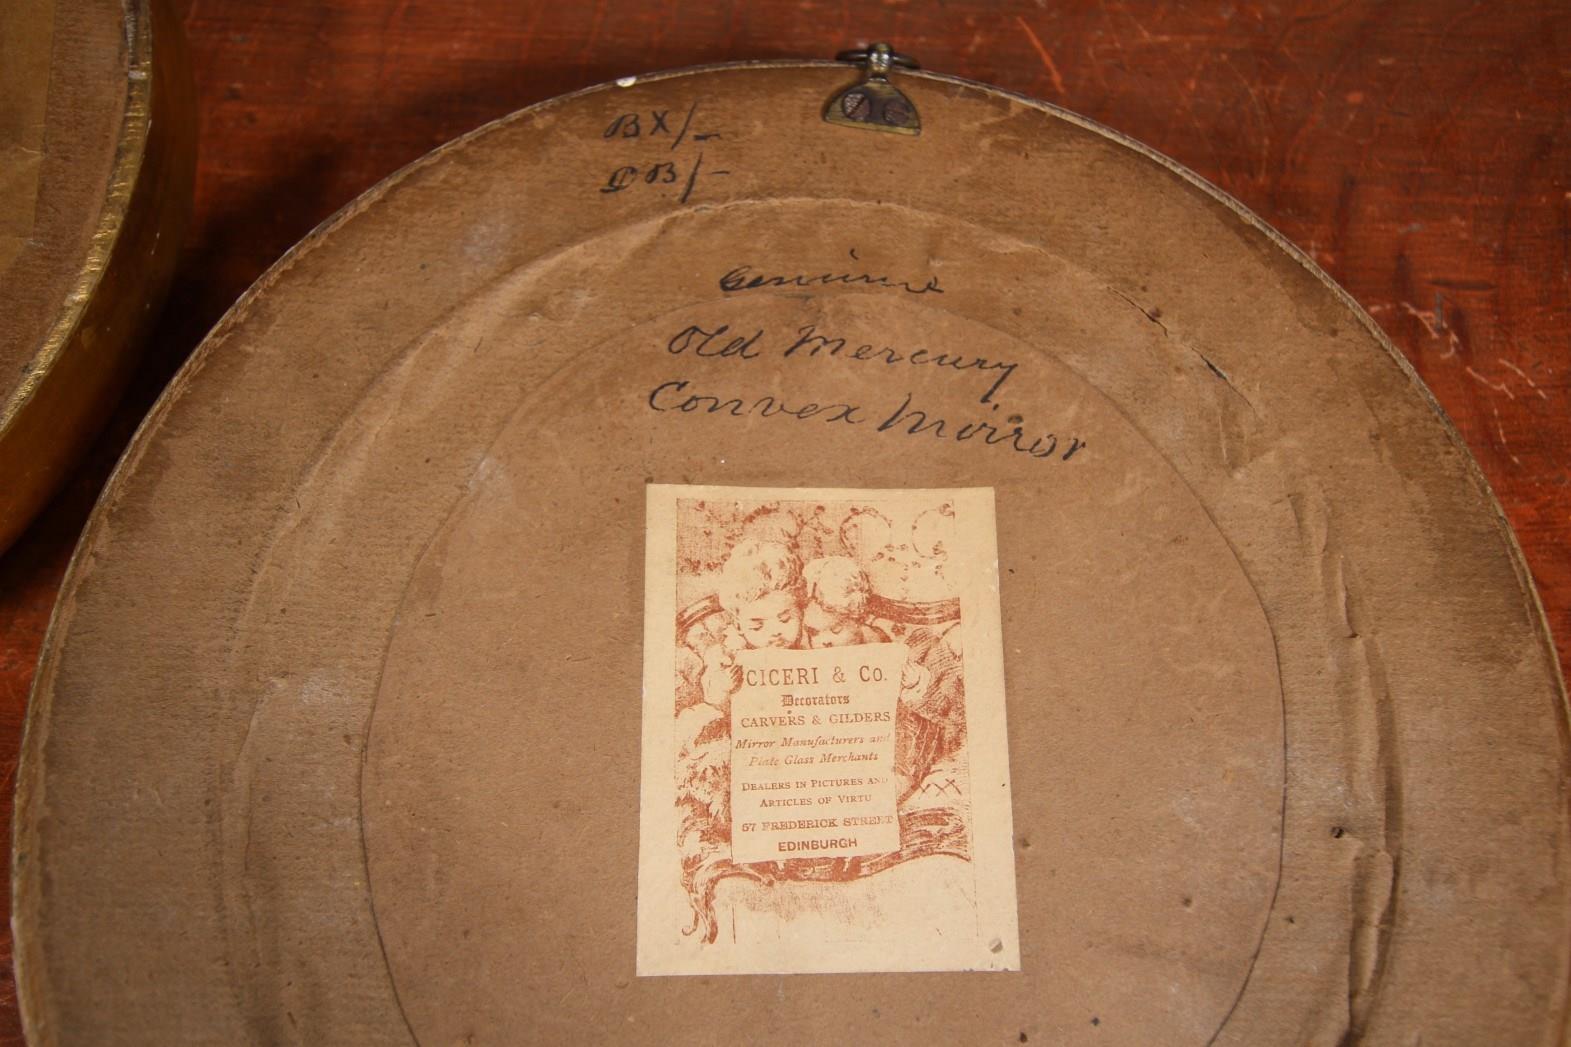 BX/-
DB/-
Genuine
Old Mercury
Convex Mirror
CICERI & Co.
Decorators
CARVERS & GILDERS
Mirror Manufacturers and
Plate Glass Merchants
DEALERS IN PICTURES AND
ARTICLES OF VIRTU
57 FREDERICK STREET
EDINBURGH